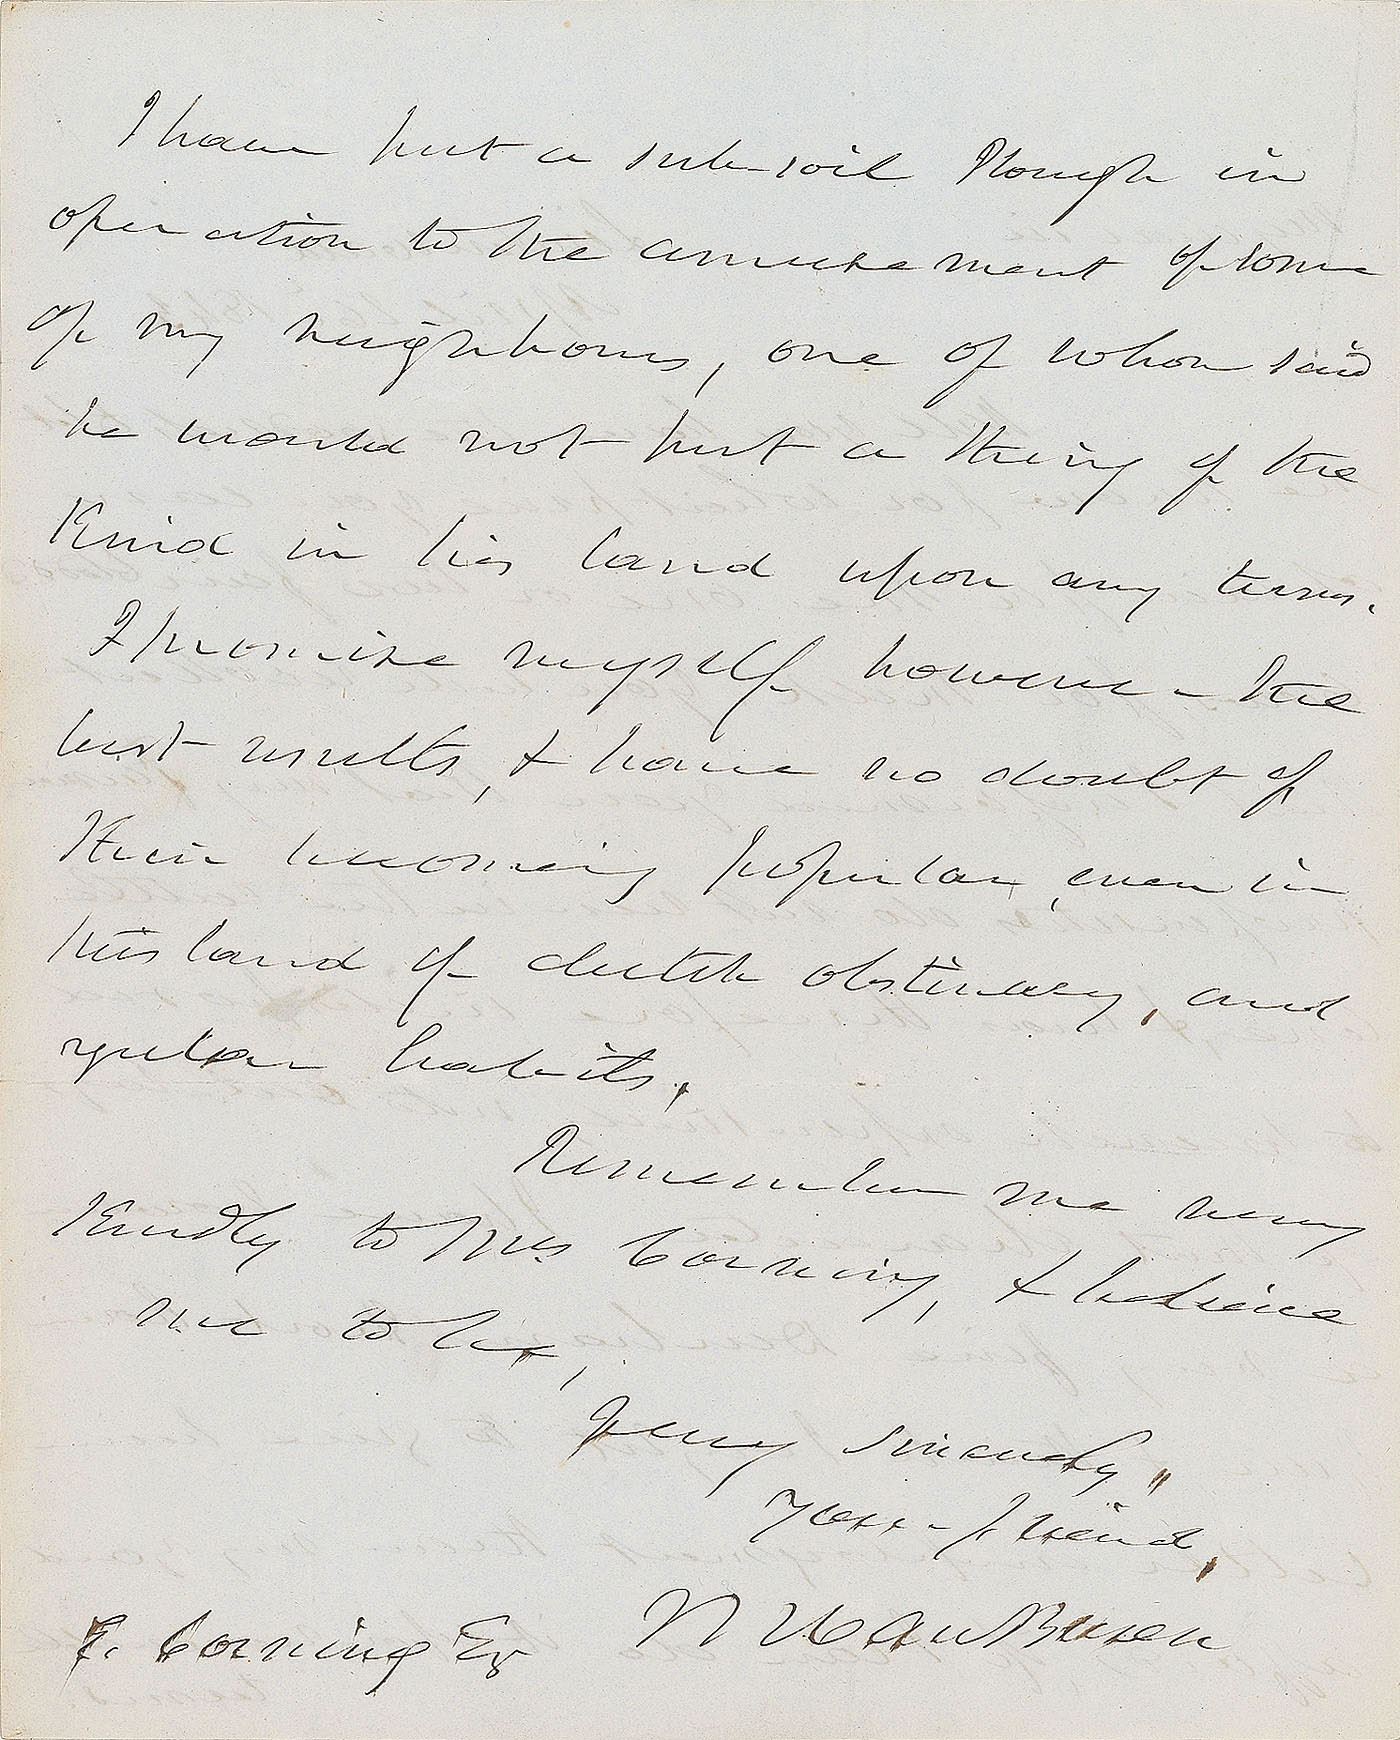 I have put a sub-soil Plough in
operation to the amusement of some
of my neighbours, one of whom said
he would not put a thing of the
Kind in his land upon any terms.
I promise myself however - the
best results, & have no doubt of
their becoming popular, even in
this land of dutch obstinacy, and
regular habits.
Remember me very
Kindly to Mrs Corning, & believe
me to be,
Very sincerely,
Your friend,
M Van Buren
E. Corning Es